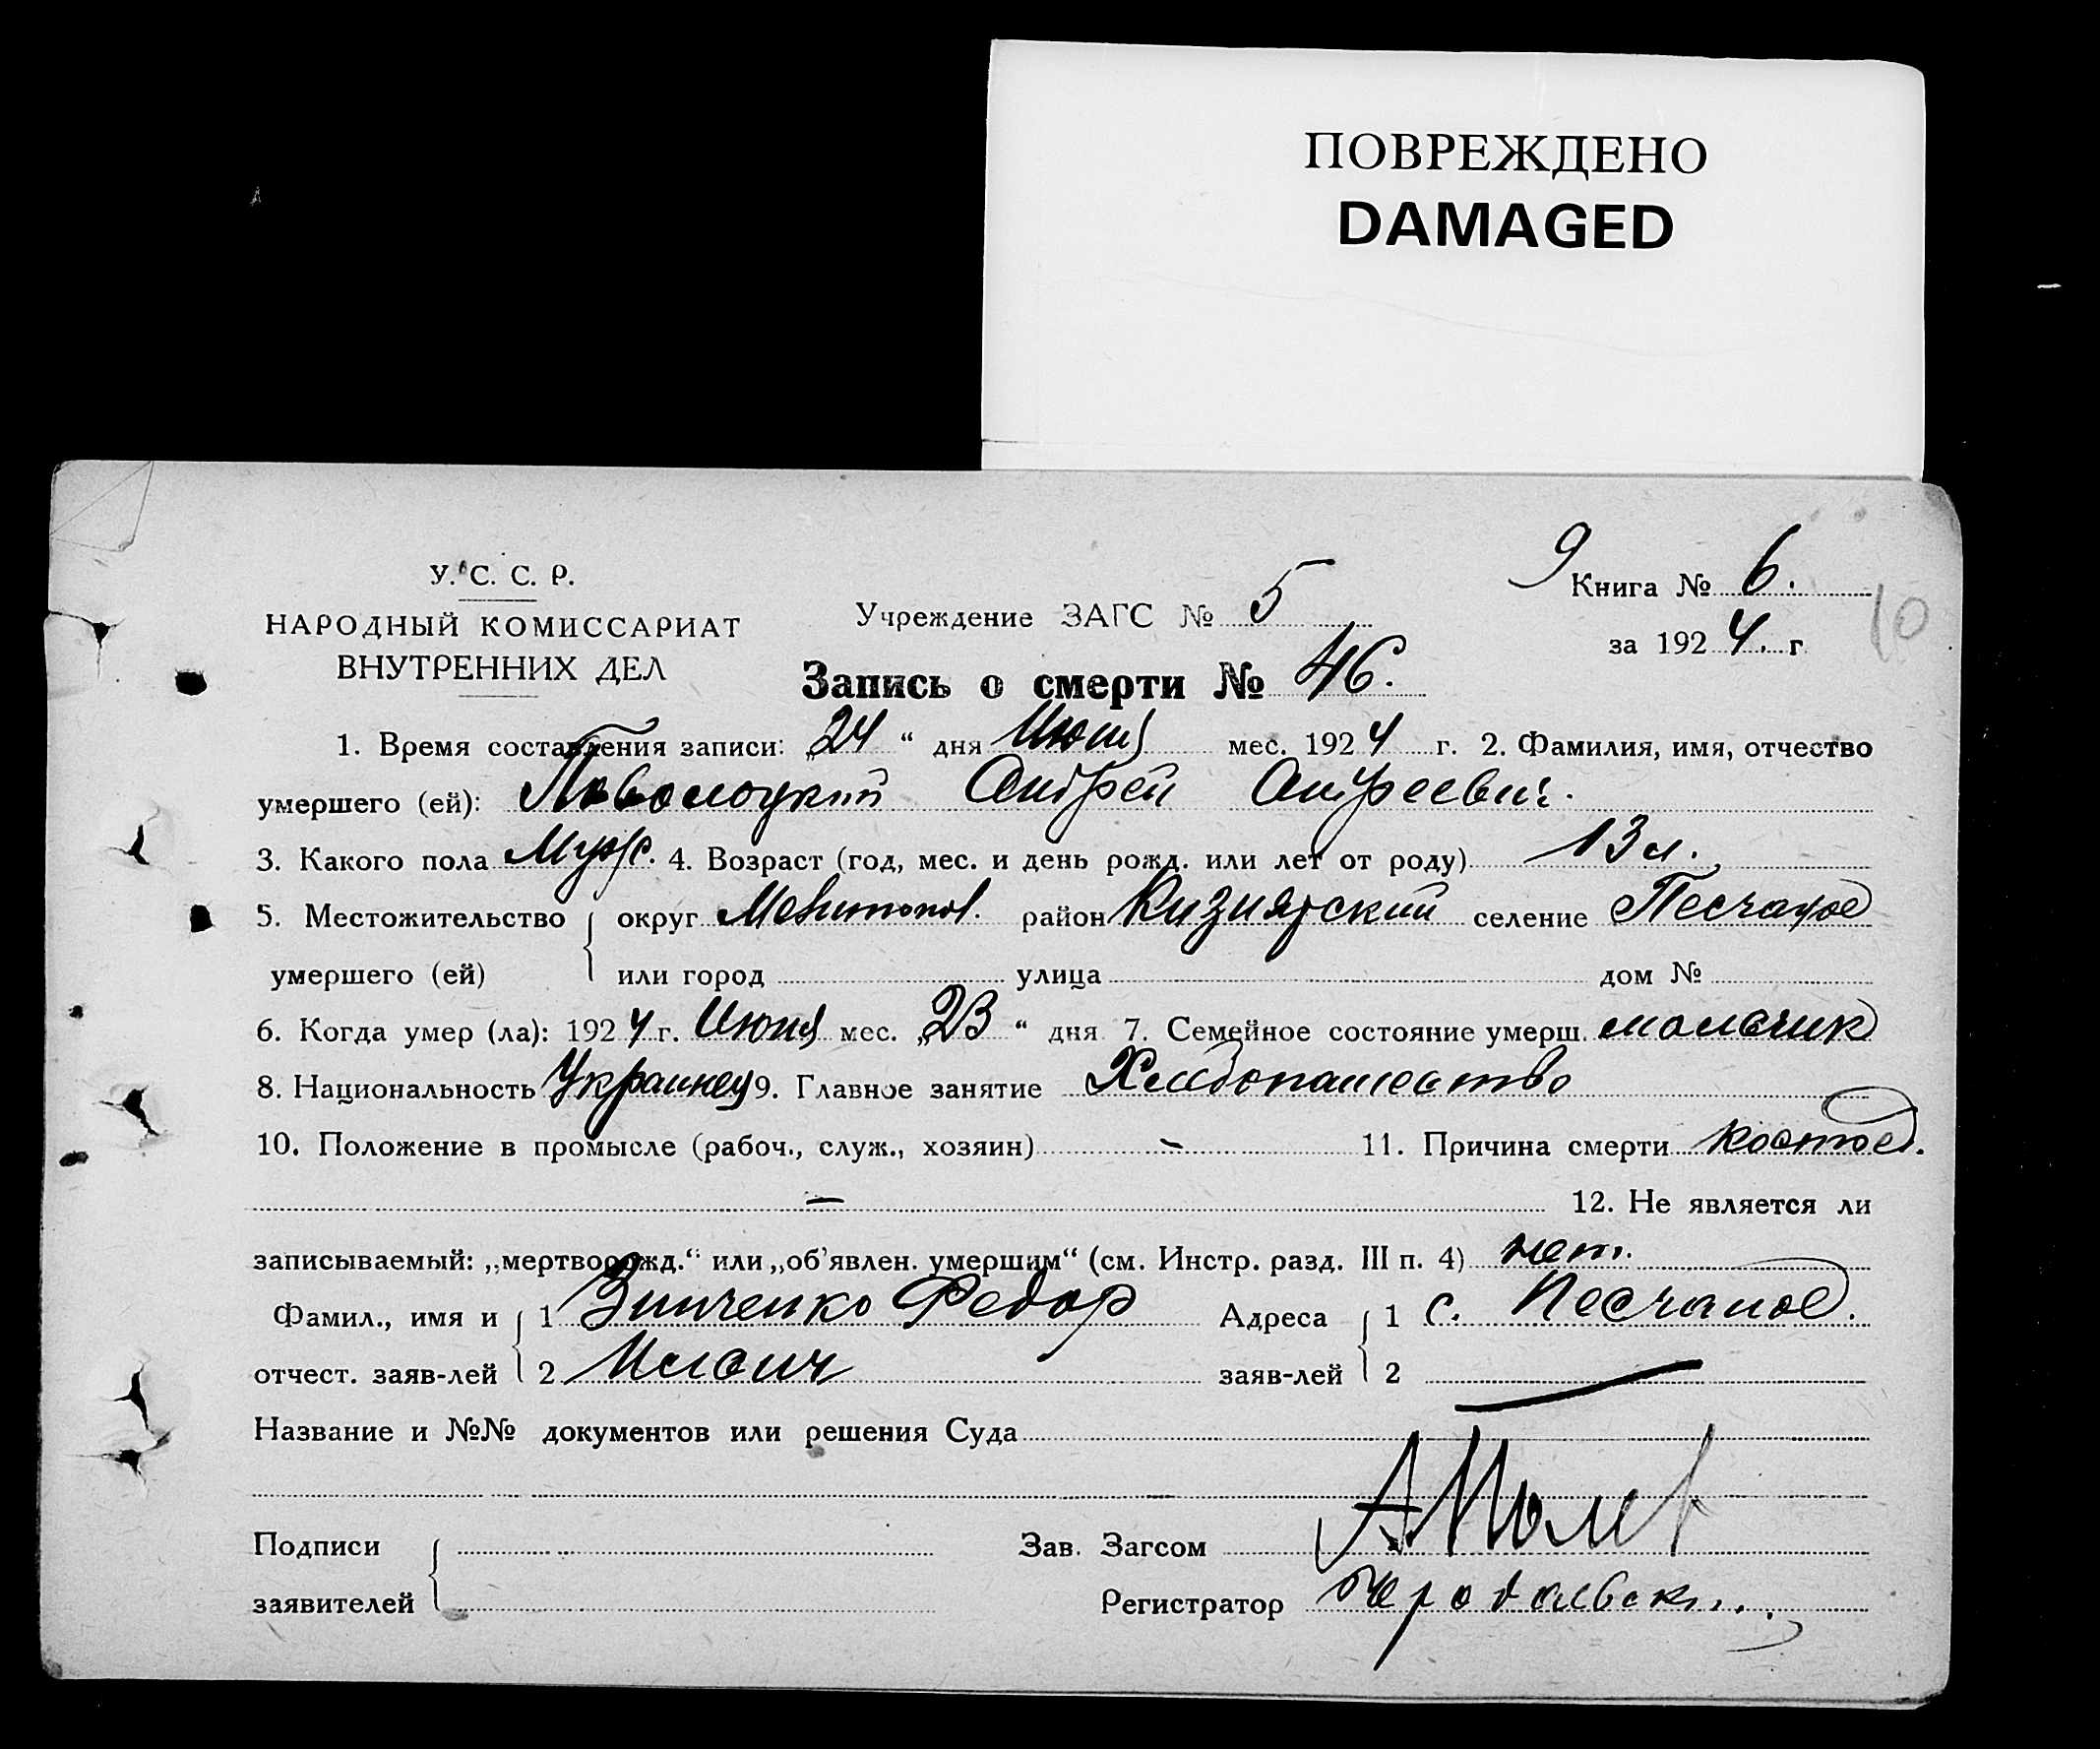 ПОВРЕЖДЕНО
DAMAGED
У. С. С. Р.
НАРОДНЫЙ КОМИССАРИАТ
ВНУТРЕННИХ ДЕЛ
Учреждение ЗАГС № 5
9 Книга № 6.
за 1924. г
10
Запись о смерти № 46.
1. Время составления записи: „24“ дня Июня мес. 1924 г. 2. Фамилия, имя, отчество
умершего (ей): Поволоцкий Андрей Андреевич.
3. Какого пола Муж. 4. Возраст (год, мес. и день рожд. или лет от роду) 13 л.
5. Местожительство округ Мелитопол. район Кизиярский селение Песчаное
умершего (ей) или город улица дом №
6. Когда умер (ла): 1924 г. Июня мес. „23“ дня 7. Семейное состояние умерш. мальчик
8. Национальность Украинец 9. Главное занятие Хлебопашество
10. Положение в промысле (рабоч., служ., хозяин) – 11. Причина смерти костоед.
– 12. Не является ли
записываемый: „мертворожд.“ или „об’явлен. умершим“ (см. Инстр. разд. III п. 4) нет.
Фамил., имя и 1 Зинченко Федор Адреса 1 с. Песчаное.
отчест. заяв-лей 2 заяв-лей 2 —
Название и №№ документов или решения Суда
Подписи Зав. Загсом
заявителей Регистратор